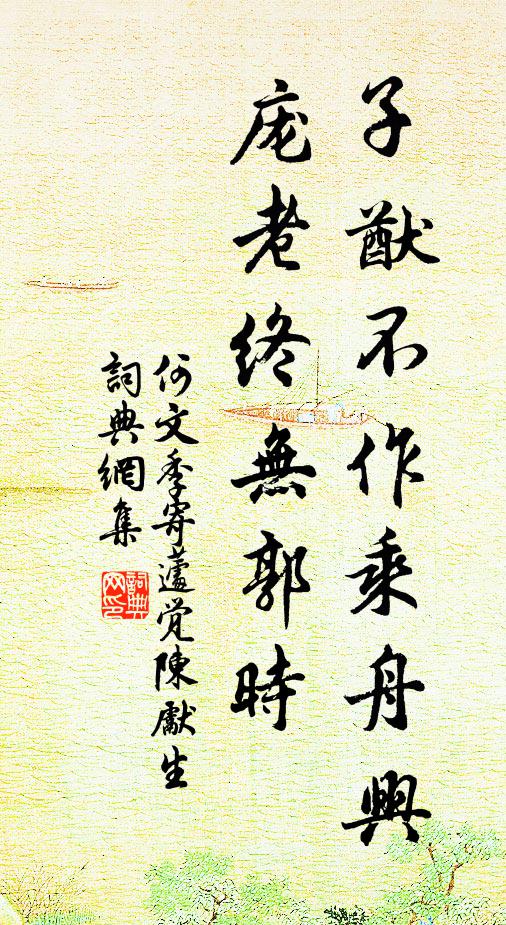 子猷不作乘舟興
庞老終無郭時
何文季寄蘆觉陳獻生
詞典網集
詞典网印